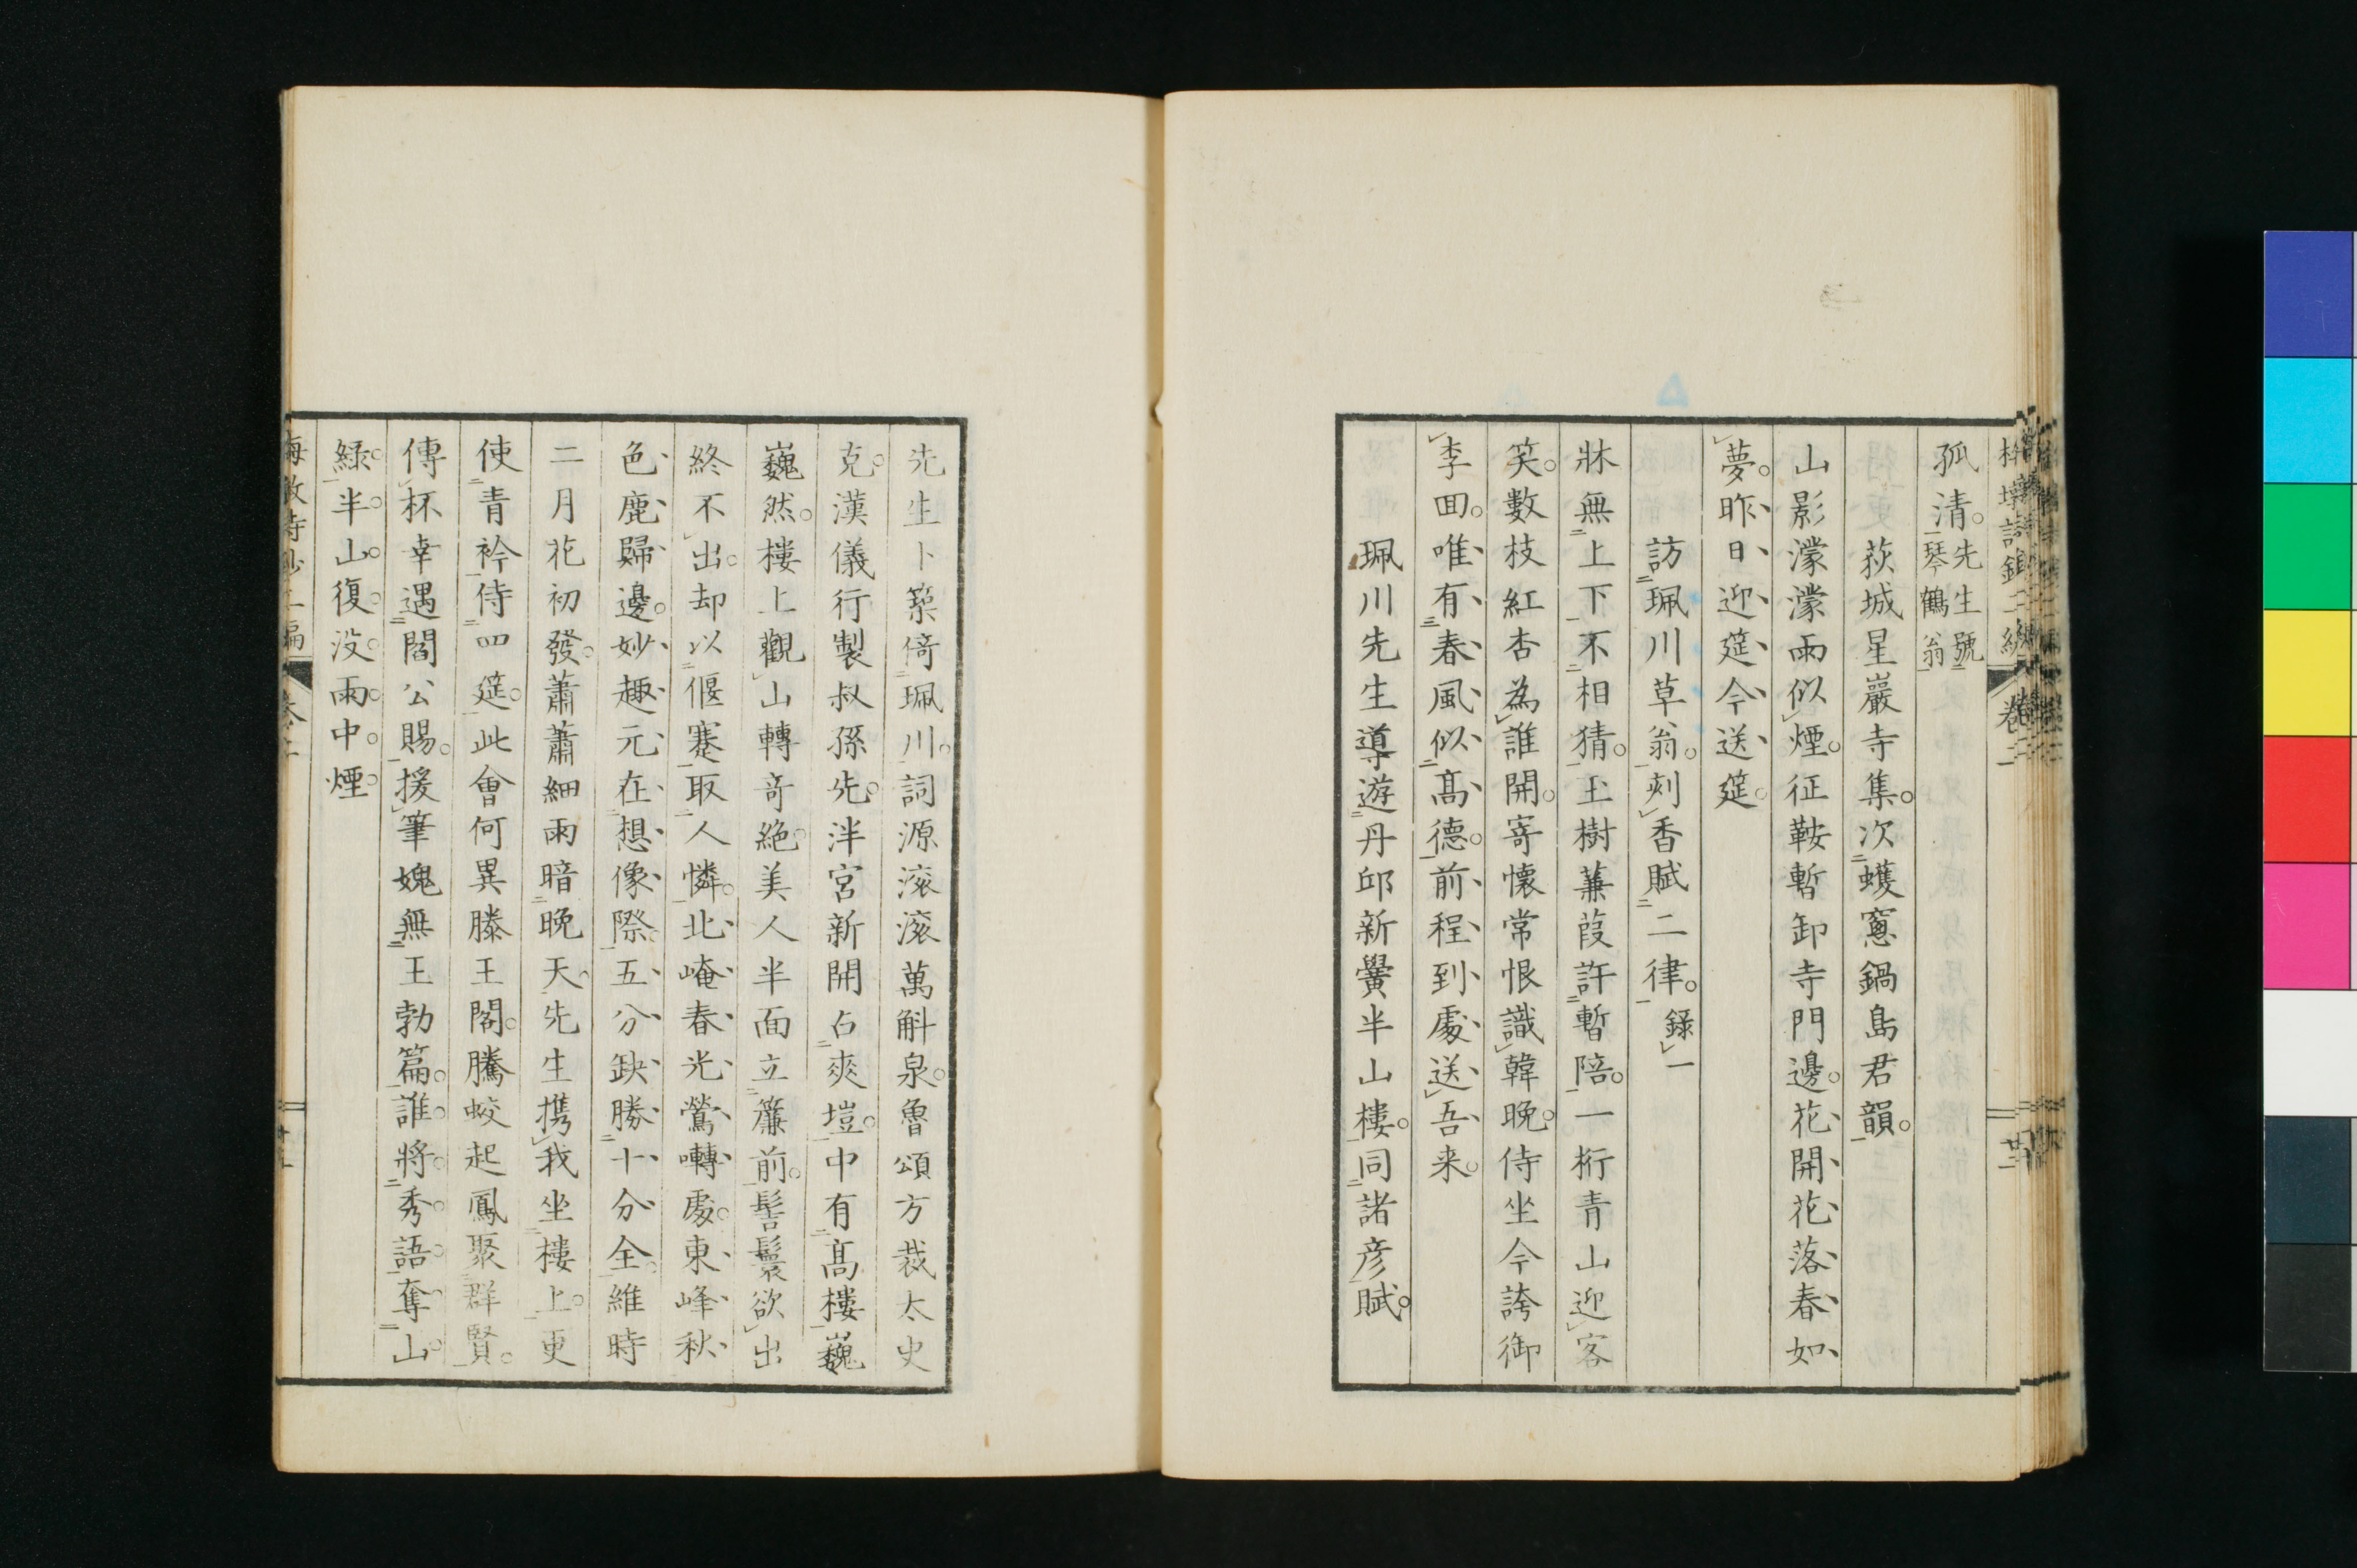 孤清。先生號琴鶴翁
荻城星巖寺集。次蠖窻鍋島君韻。
山影濛濛雨似煙。征鞍暫卸寺門邊。花開花落春如
夢。昨日迎筵今送筵。
訪珮川草翁。刾香賦二律。錄一
牀無上下不相猜。玉樹蒹葭許暫陪。一桁青山迎客
笑。數枝紅杏為誰開。寄懷常恨識韓晚。侍坐今誇御
李回。唯有春風似髙德。前程到處送吾来。
珮川先生導遊丹邱新黌半山樓。同諸彦賦。
先生卜築倚珮川。詞源滚滚萬斛泉。魯頌方裁太史
克。漢儀行製叔孫先。泮宮新開占爽塏。中有髙樓巍
巍然。樓上觀山轉竒絶。美人半面立簾前。髻鬟欲出
終不出。却以偃蹇取人憐。北崦春光鶯囀處。東峰秋
色鹿歸邊。妙趣元在想像際。五分缺勝十分全。維時
二月花初發。蕭蕭細雨暗晚天。先生携我坐樓上。更
使青衿侍四筵。此會何異滕王閣。騰蛟起鳳聚群賢。
傳杯幸遇閻公賜。援筆媿無王勃篇。誰將秀語奪山
綠。半山復没雨中煙。